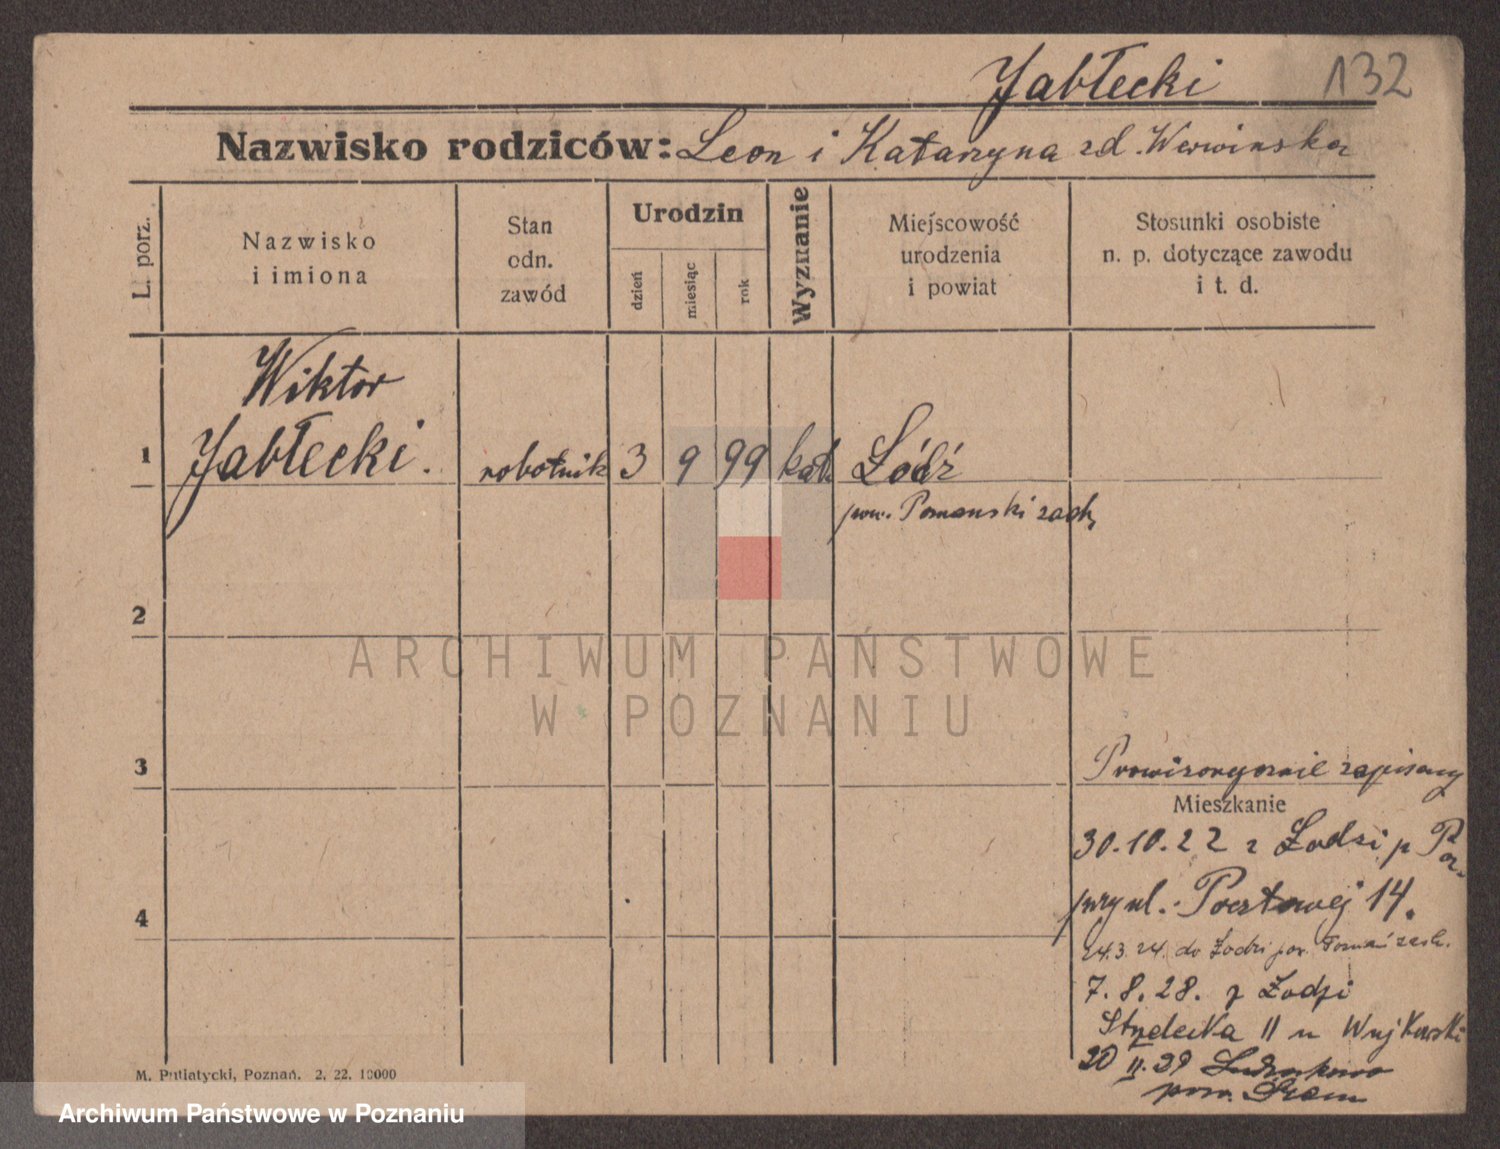 Jabłecki 132
Nazwisko rodziców: Leon i Katarzyna zd. Werwinska
L. porz.
Nazwisko
i imiona
Stan
odn.
zawód
Urodzin
dzień
miesiąc
rok
Wyznanie
Miejscowość
urodzenia
i powiat
Stosunki osobiste
n. p. dotyczące zawodu
i t. d.
Wiktor
1 Jabłecki. robotnik 3 9 99 kat. Łódź
pow. Poznański zach.
2
ARCHIWUM PAŃSTWOWE
W POZNANIU
3 Prowizorycznie zapisany
Mieszkanie
30.10.22 z Łodzi p Poz.
przy ul. Pocztowej 14.
4
24.3.24. do Łodzi pow. Poznań zach.
7.8.28. z Łodzi
11 u
20 II.39
pow.
M. Putiatycki, Poznań. 2. 22. 10000
Archiwum Państwowe w Poznaniu